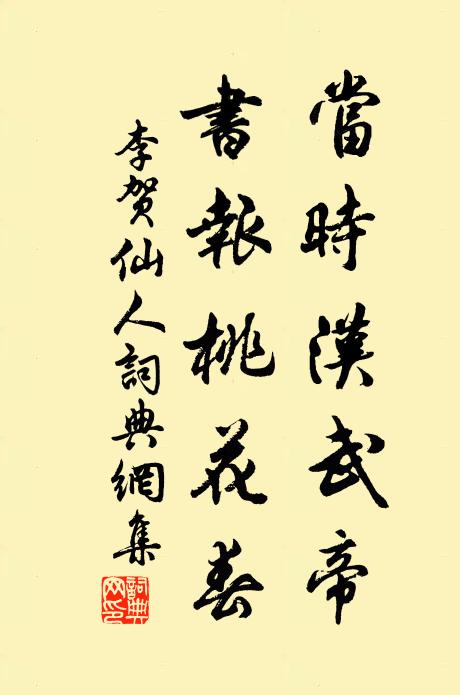 當時漢武帝
書報桃花春
李賀仙人詞典網集
詞典网印